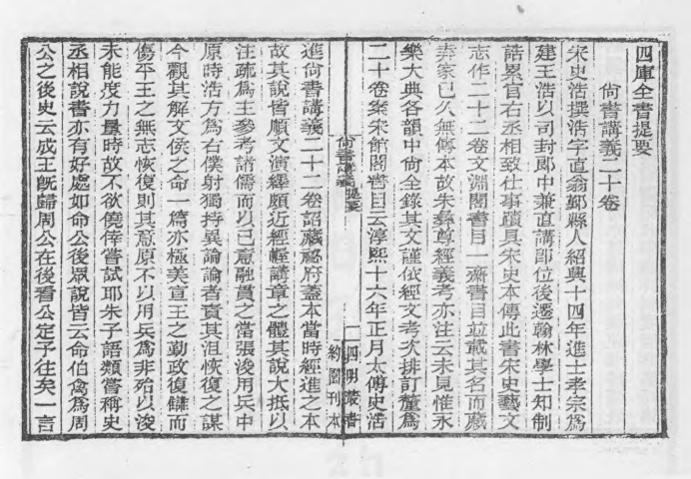 四庫全書提要
尙書講義二十卷
宋史浩撰浩字直翁鄞縣人紹興十四年進士孝宗爲
建王浩以司封郎中兼直講卽位後遷翰林學士知制
誥累官右丞相致仕事蹟具宋史本傳此書宋史藝文
志作二十二卷文淵閣書目一齋書目並載其名而藏
弆家已久無傳本故朱彝尊經義考亦注云未見惟永
樂大典各韻中尙全錄其文謹依經文考次排訂釐爲
二十卷案宋館閣書目云淳熙十六年正月太傅史浩
尙書講義
提要
一
四明叢書
約園刊本
進尙書講義二十二卷詔藏祕府蓋本當時經進之本
故其說皆順文演繹頗近經幄講章之體其說大抵以
注疏爲主參考諸儒而以己意融貫之當張浚用兵中
原時浩方爲右僕射獨持異論論者責其沮恢復之謀
今觀其解文侯之命一篇亦極美宣王之勤政復讎而
傷平王之無志恢復則其意原不以用兵爲非殆以浚
未能度力量時故不欲僥倖嘗試耶朱子語類嘗稱史
丞相說書亦有好處如命公後眾說皆云命伯禽爲周
公之後史云成王旣歸周公在後看公定予往矣一言